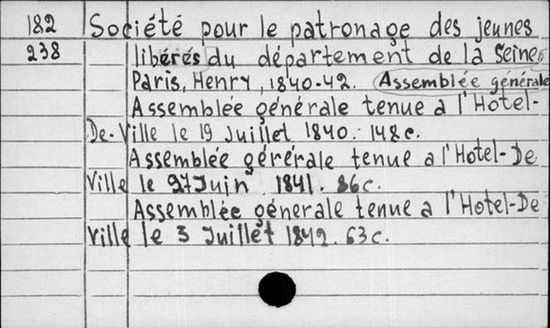 182 Société pour le patronage des jeunes
238 libérés du département de la Seine
Paris, Henry, 1840-42. Assemblée générale
Assemblée générale tenue a l'Hotel-
De-Ville le 19 Juillet 1840. 148 c.
Assemblée gérérale tenue a l'Hotel-De
Ville le 27 Juin 1841. 86 c.
Assemblée génerale tenue a l'Hotel-De
Ville le 3 Juillet 1842. 63 c.